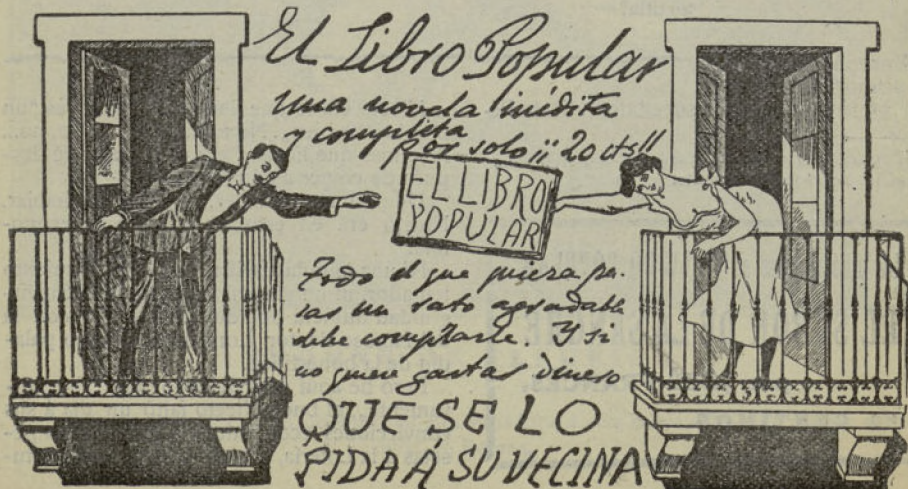 El Libro Popular
una novela inédita
y completa
por solo ¡¡20 cts!!
EL LIBRO
POPULAR
Todo el que quiera pa-
sar un rato agradable
debe comprarle. Y si
no quiere gastar dinero
QUE SE LO
PIDA Á SU VECINA